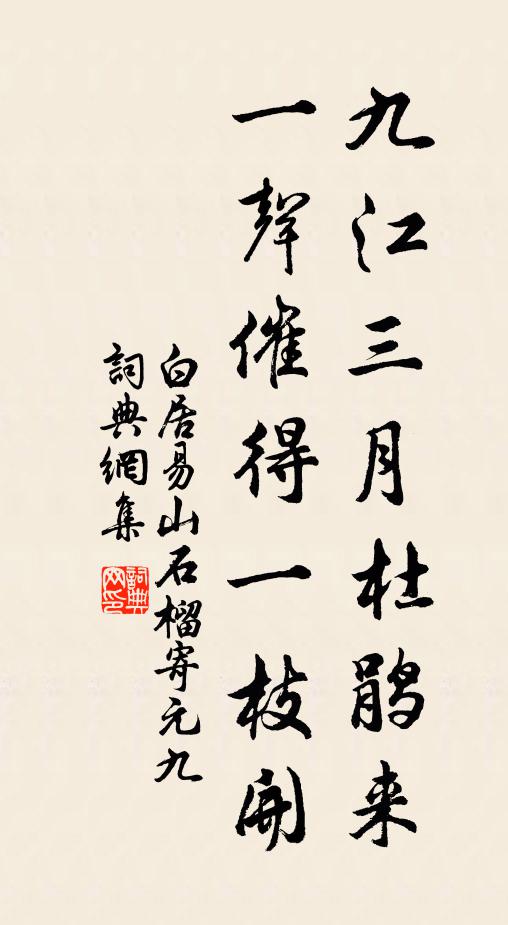 九江三月杜鹃来
一聲催得一枝開
白居易山石榴寄元九
詞典網集
詞典網印